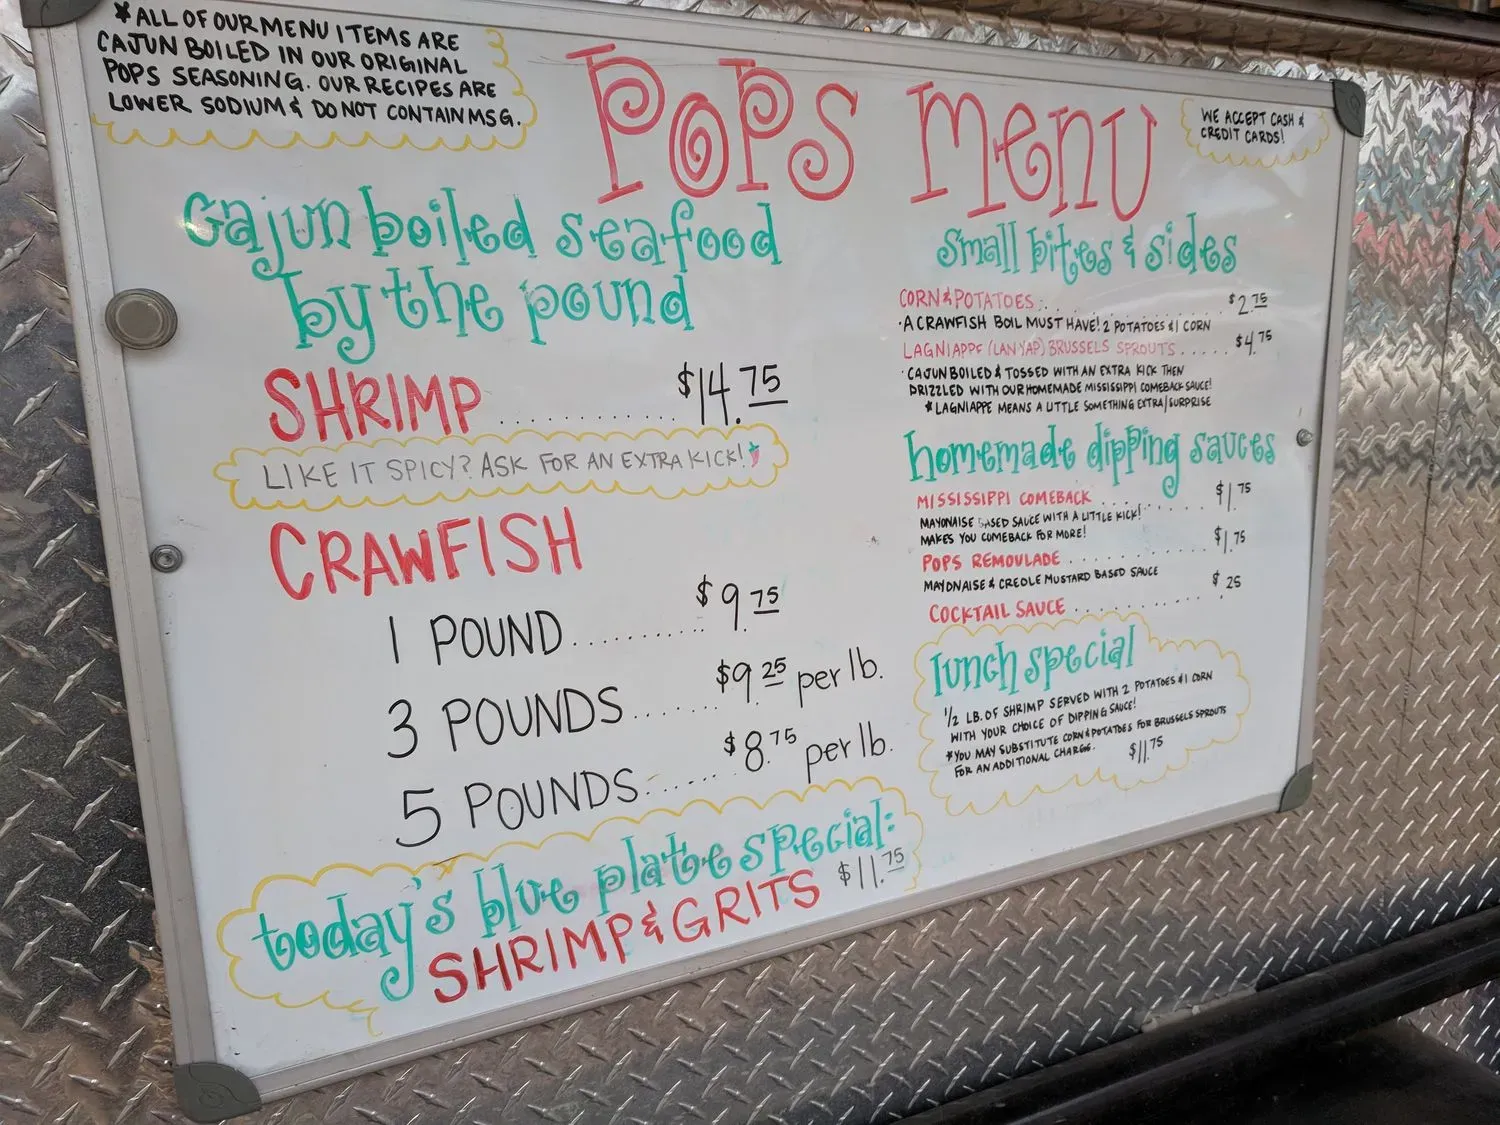 *ALL OF OUR MENU ITEMS ARE
CAJUN BOILED IN OUR ORIGINAL
POPS SEASONING. OUR RECIPES ARE
LOWER SODIUM & DO NOT CONTAIN MSG.
POPS MENU
WE ACCEPT CASH &
CREDIT CARDS!
Cajun boiled seafood
by the pound
SHRIMP .......... $14.75
LIKE IT SPICY? ASK FOR AN EXTRA KICK!
CRAWFISH
1 POUND .......... $9.75
3 POUNDS ....... $9.25 per lb.
5 POUNDS ....... $8.75 per lb.
today's blue plate special:
SHRIMP & GRITS $11.75
small bites & sides
CORN & POTATOES .......... $2.75
·A CRAWFISH BOIL MUST HAVE! 2 POTATOES & 1 CORN
LAGNIAPPE (LAN·YAP) BRUSSELS SPROUTS ..... $4.75
·CAJUN BOILED & TOSSED WITH AN EXTRA KICK THEN
DRIZZLED WITH OUR HOMEMADE MISSISSIPPI COMEBACK SAUCE!
*LAGNIAPPE MEANS A LITTLE SOMETHING EXTRA/SURPRISE
homemade dipping sauces
MISSISSIPPI COMEBACK .......... $1.75
MAYONAISE BASED SAUCE WITH A LITTLE KICK!
MAKES YOU COMEBACK FOR MORE!
POPS REMOULADE .......... $1.75
MAYONAISE & CREOLE MUSTARD BASED SAUCE
COCKTAIL SAUCE .......... $.25
lunch special
1/2 LB. OF SHRIMP SERVED WITH 2 POTATOES & 1 CORN
WITH YOUR CHOICE OF DIPPING SAUCE!
*YOU MAY SUBSTITUTE CORN & POTATOES FOR BRUSSELS SPROUTS
FOR AN ADDITIONAL CHARGE. $11.75